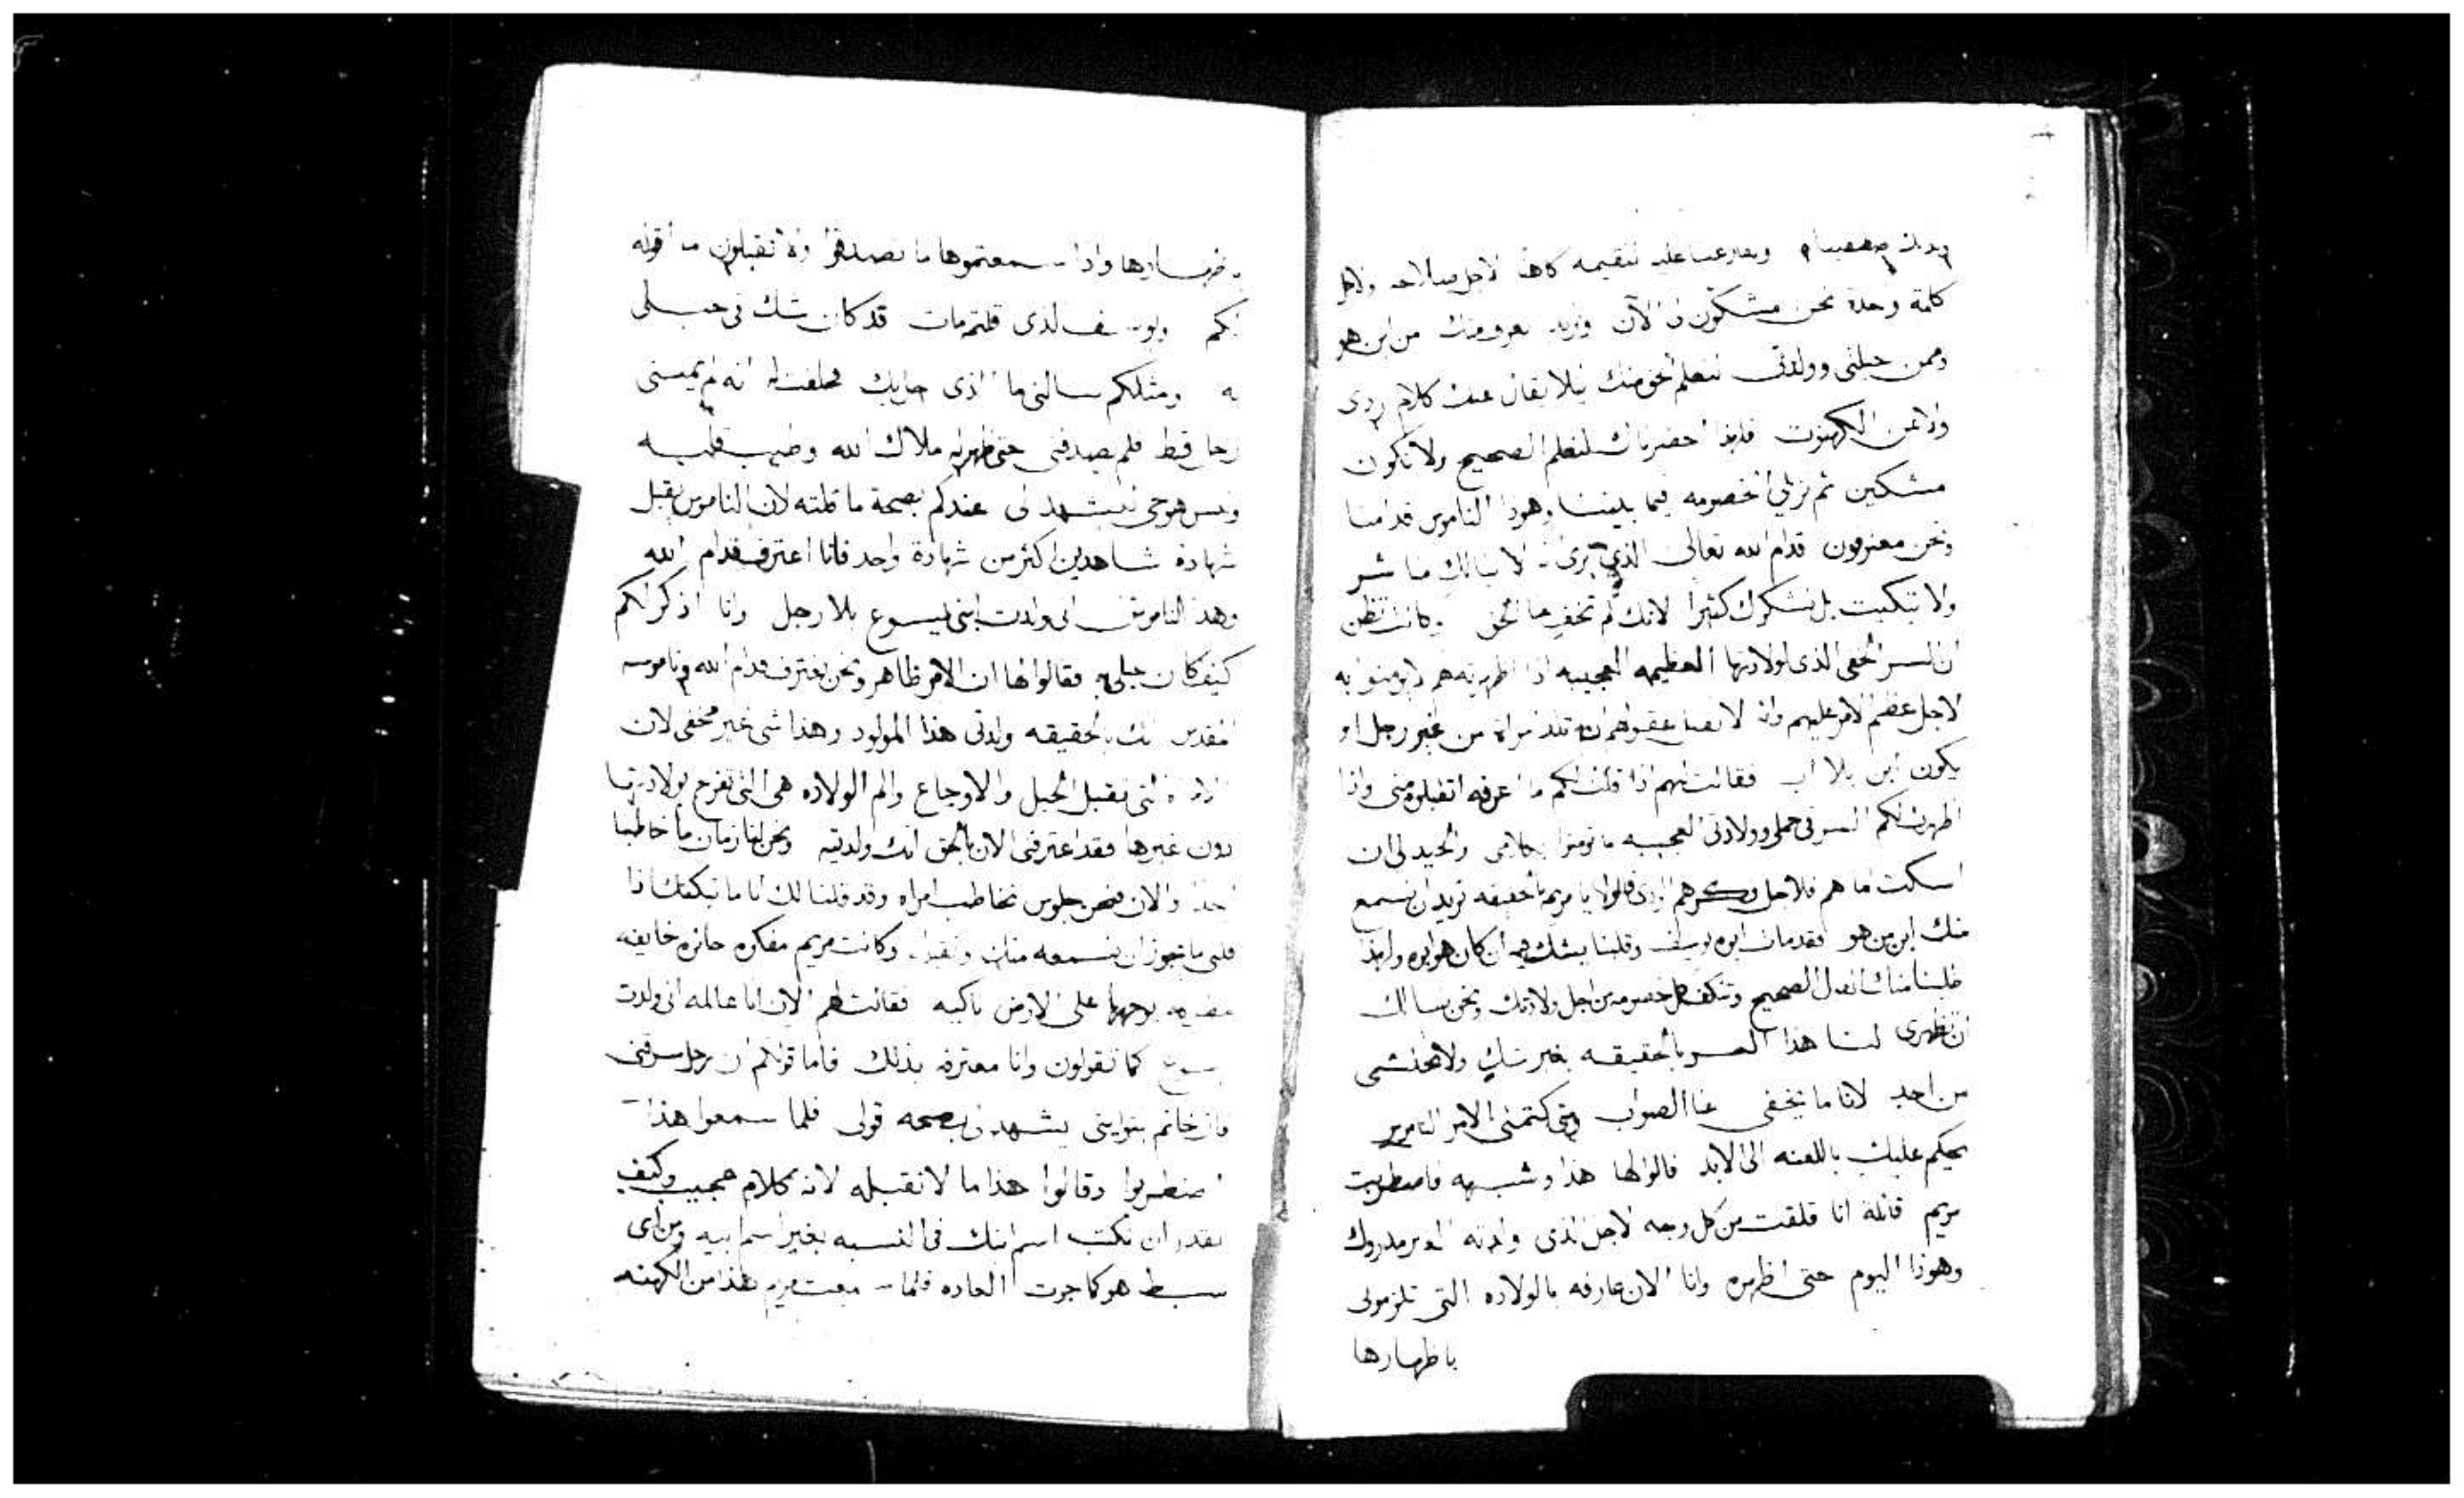 وقارعنا عليه لنقيمه كاهنا لاجل صلاحه ولاجل
كلمة وحدة نحن مشكون في الآن ونريد نعرف منك من ابن هو
وممن حبلتي وولدتي لنعلم الحق منك ليلا يقال عنك كلام ردي
الكهنوت فلهذا احضرناك لنعلم الصحيح ولا نكون
مشكين ثم نزيل الخصومه فيما بيننا وهوذا الناموس قدامنا
ونحن معترفون قدام الله تعالى الذي يرى لا ينالك منا شر
ولا تبكيت بل نشكرك كثيرا لانك لم تخف منا الحق وكانت تظن
ان السر الخفي الذي لولادتها العظيمه العجيبه اذا اظهرته هم لا يومنوا به
لاجل عظم الامر عليهم وان عقولهم ان تلد مراة من غير رجل او
يكون ابن بلا اب فقالت لهم اذا قلت لكم ما اعرفه اتقبلوه مني واذا
اظهرت لكم السر في حملي وولادتي العجيبه ما تومنوا بكلامي والجيد لي ان
اسكت اما هم فلاجل فكرهم الردي قالوا يا مريم بالحقيقه نريد ان نسمع
منك ابن من هو فقد مات ابوه يوسف وقلبنا يشك فيه ان كان هو ابوه ولهذا
طلبنا منك الصحيح خصومه من اجل ولادتك ونحن نسالك
ان تظهري لنا هذا السر بالحقيقه بغير شك ولا تختشي
من احد لانا ما يخفى عنا الصواب ومتى كتمتي الامر الناموس
يحكم عليك باللعنه الى الابد قالوا لها هذا وشبهه فاضطربت
مريم قائلة انا قلقت من كل وجه لاجل الذي ولدته
وهوذا اليوم حتى اظهره وانا الان عارفه بالولاده التي تلزموني
باظهارها
باظهارها واذا سمعتموها ما تصدقوا ولا تقبلون ما اقوله
لكم ويوسف الذي قلتم مات قد كان شك في حبلي
به ومثلكم سالني ما الذي حل بك فحلفت له انه لم يمسني
رجل قط فلم يصدقني حتى ظهر له ملاك الله وطيب قلبه
وليس هو حي ليشهد لي عندكم بصحة ما قلته لان الناموس يقبل
شهادة شاهدين اكثر من شهادة واحد فانا اعترف قدام الله
وهذا الناموس اني ولدت ابني يسوع بلا رجل وانا اذكر لكم
كيف كان حبلي به فقالوا لها ان الامر ظاهر ونحن نعترف قدام الله وناموسه
المقدس انك بالحقيقه ولدتي هذا المولود وهذا شي غير مخفي لان
التي تقبل الحبل والاوجاع والم الولاده هي التي تفرح بولادتها
دون غيرها فقد اعترفتي الان بالحق انك ولدتيه ونحن لنا زمان ما خاطبنا
احدا والان فنحن جلوس نخاطب امراه وقد قلنا لك انا ما نبكتك اذا
قلتي ما يجوز ان نسمعه منك ونقبله وكانت مريم مفكره حائره خايفه
بوجهها على الارض باكيه فقالت لهم الان انا عالمه اني ولدت
يسوع كما تقولون وانا معترفه بذلك فاما قولكم ان رجل سرقني
فان خاتم بتوليتي يشهد لي بصحه قولي فلما سمعوا هذا
اضطربوا وقالوا هذا ما لا نقبله لانه كلام عجيب وكيف
نقدر ان نكتب اسم ابنك في النسبه بغير اسم ابيه ومن اي
سبط هو كما جرت العاده فلما سمعت مريم هذا من الكهنه